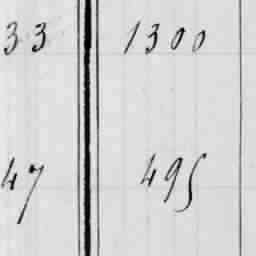 33 1300
47 495